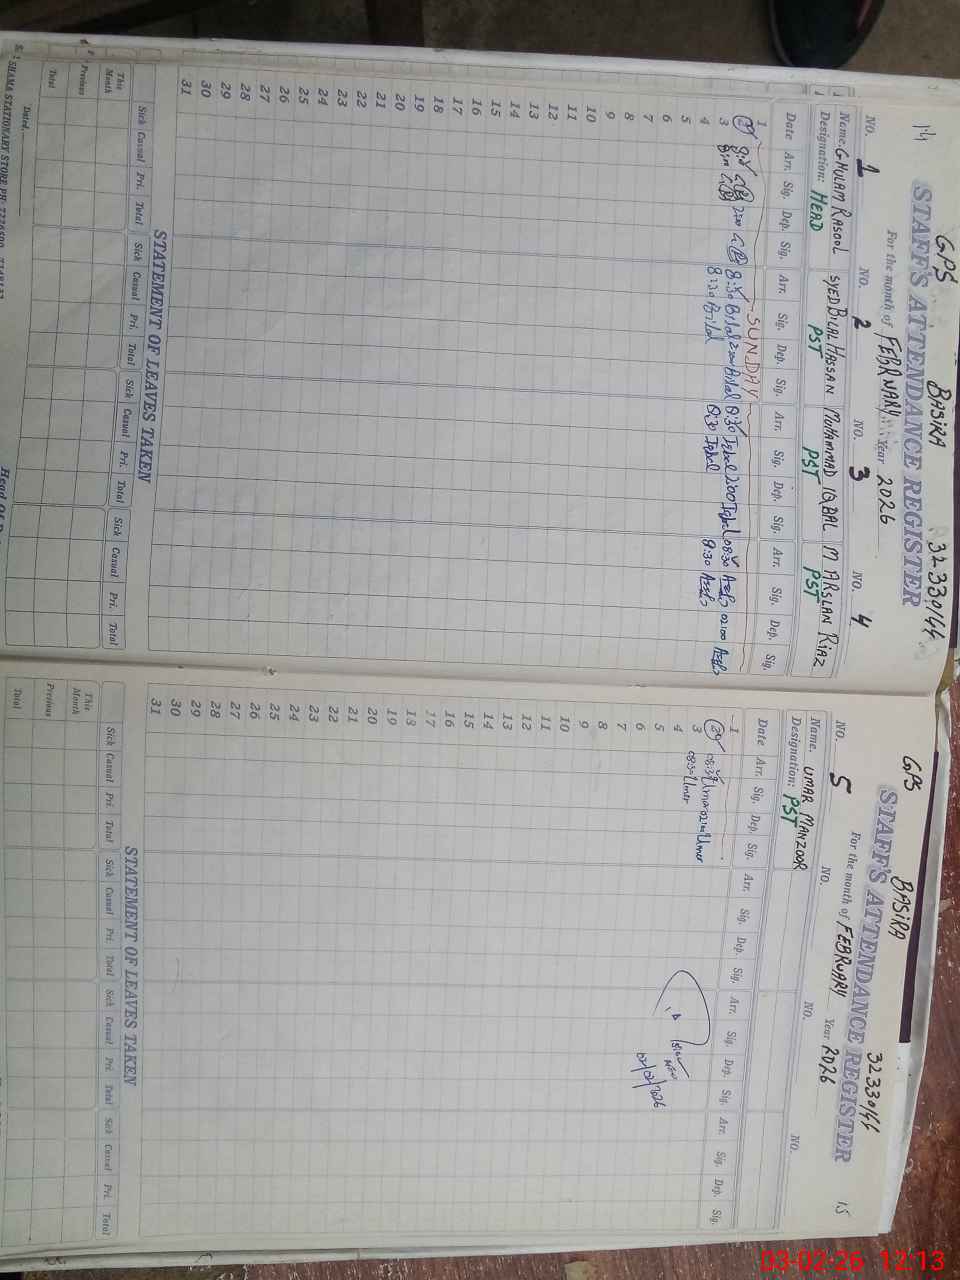 14
GPS BASIRA 32330144
STAFF'S ATTENDANCE REGISTER
For the month of FEBRUARY Year 2026
NO. 1 NO. 2 NO. 3 NO. 4
Name. GHULAM RASOOL SYED BILAL HASSAN MUHAMMAD IQBAL M ARSLAN RIAZ
Designation: HEAD PST PST PST
Date Arr. Sig. Dep. Sig. Arr. Sig. Dep. Sig. Arr. Sig. Dep. Sig. Arr. Sig. Dep. Sig.
1 SUNDAY
2 8:30 Bilal 2:00 Bilal 8:30 Iqbal 2:00 Iqbal 08:30 02:00
3 8:30 Bilal 8:30 Iqbal 8:30
4
5
6
7
8
9
10
11
12
13
14
15
16
17
18
19
20
21
22
23
24
25
26
27
28
29
30
31
STATEMENT OF LEAVES TAKEN
Sick Casual Pri. Total Sick Casual Pri. Total Sick Casual Pri. Total Sick Casual Pri. Total
This Month
Previous
Total
Dated.
SHAMA STATIONARY STORE PH:
GPS BASIRA 32330144
15
STAFF'S ATTENDANCE REGISTER
For the month of FEBRUARY Year 2026
NO. 5 NO. NO. NO.
Name. UMAR MANZOOR
Designation: PST
Date Arr. Sig. Dep. Sig. Arr. Sig. Dep. Sig. Arr. Sig. Dep. Sig. Arr. Sig. Dep. Sig.
1
2 08:30 Umar 02:00 Umar
3 08:30 Umar
4
5
6
7
8
9
10
11
12
13
14
15
16
17
18
19
20
21
22
23
24
25
26
27
28
29
30
31
02/02/2026
STATEMENT OF LEAVES TAKEN
Sick Casual Pri. Total Sick Casual Pri. Total Sick Casual Pri. Total Sick Casual Pri. Total
This Month
Previous
Total
03-02-26 12:13